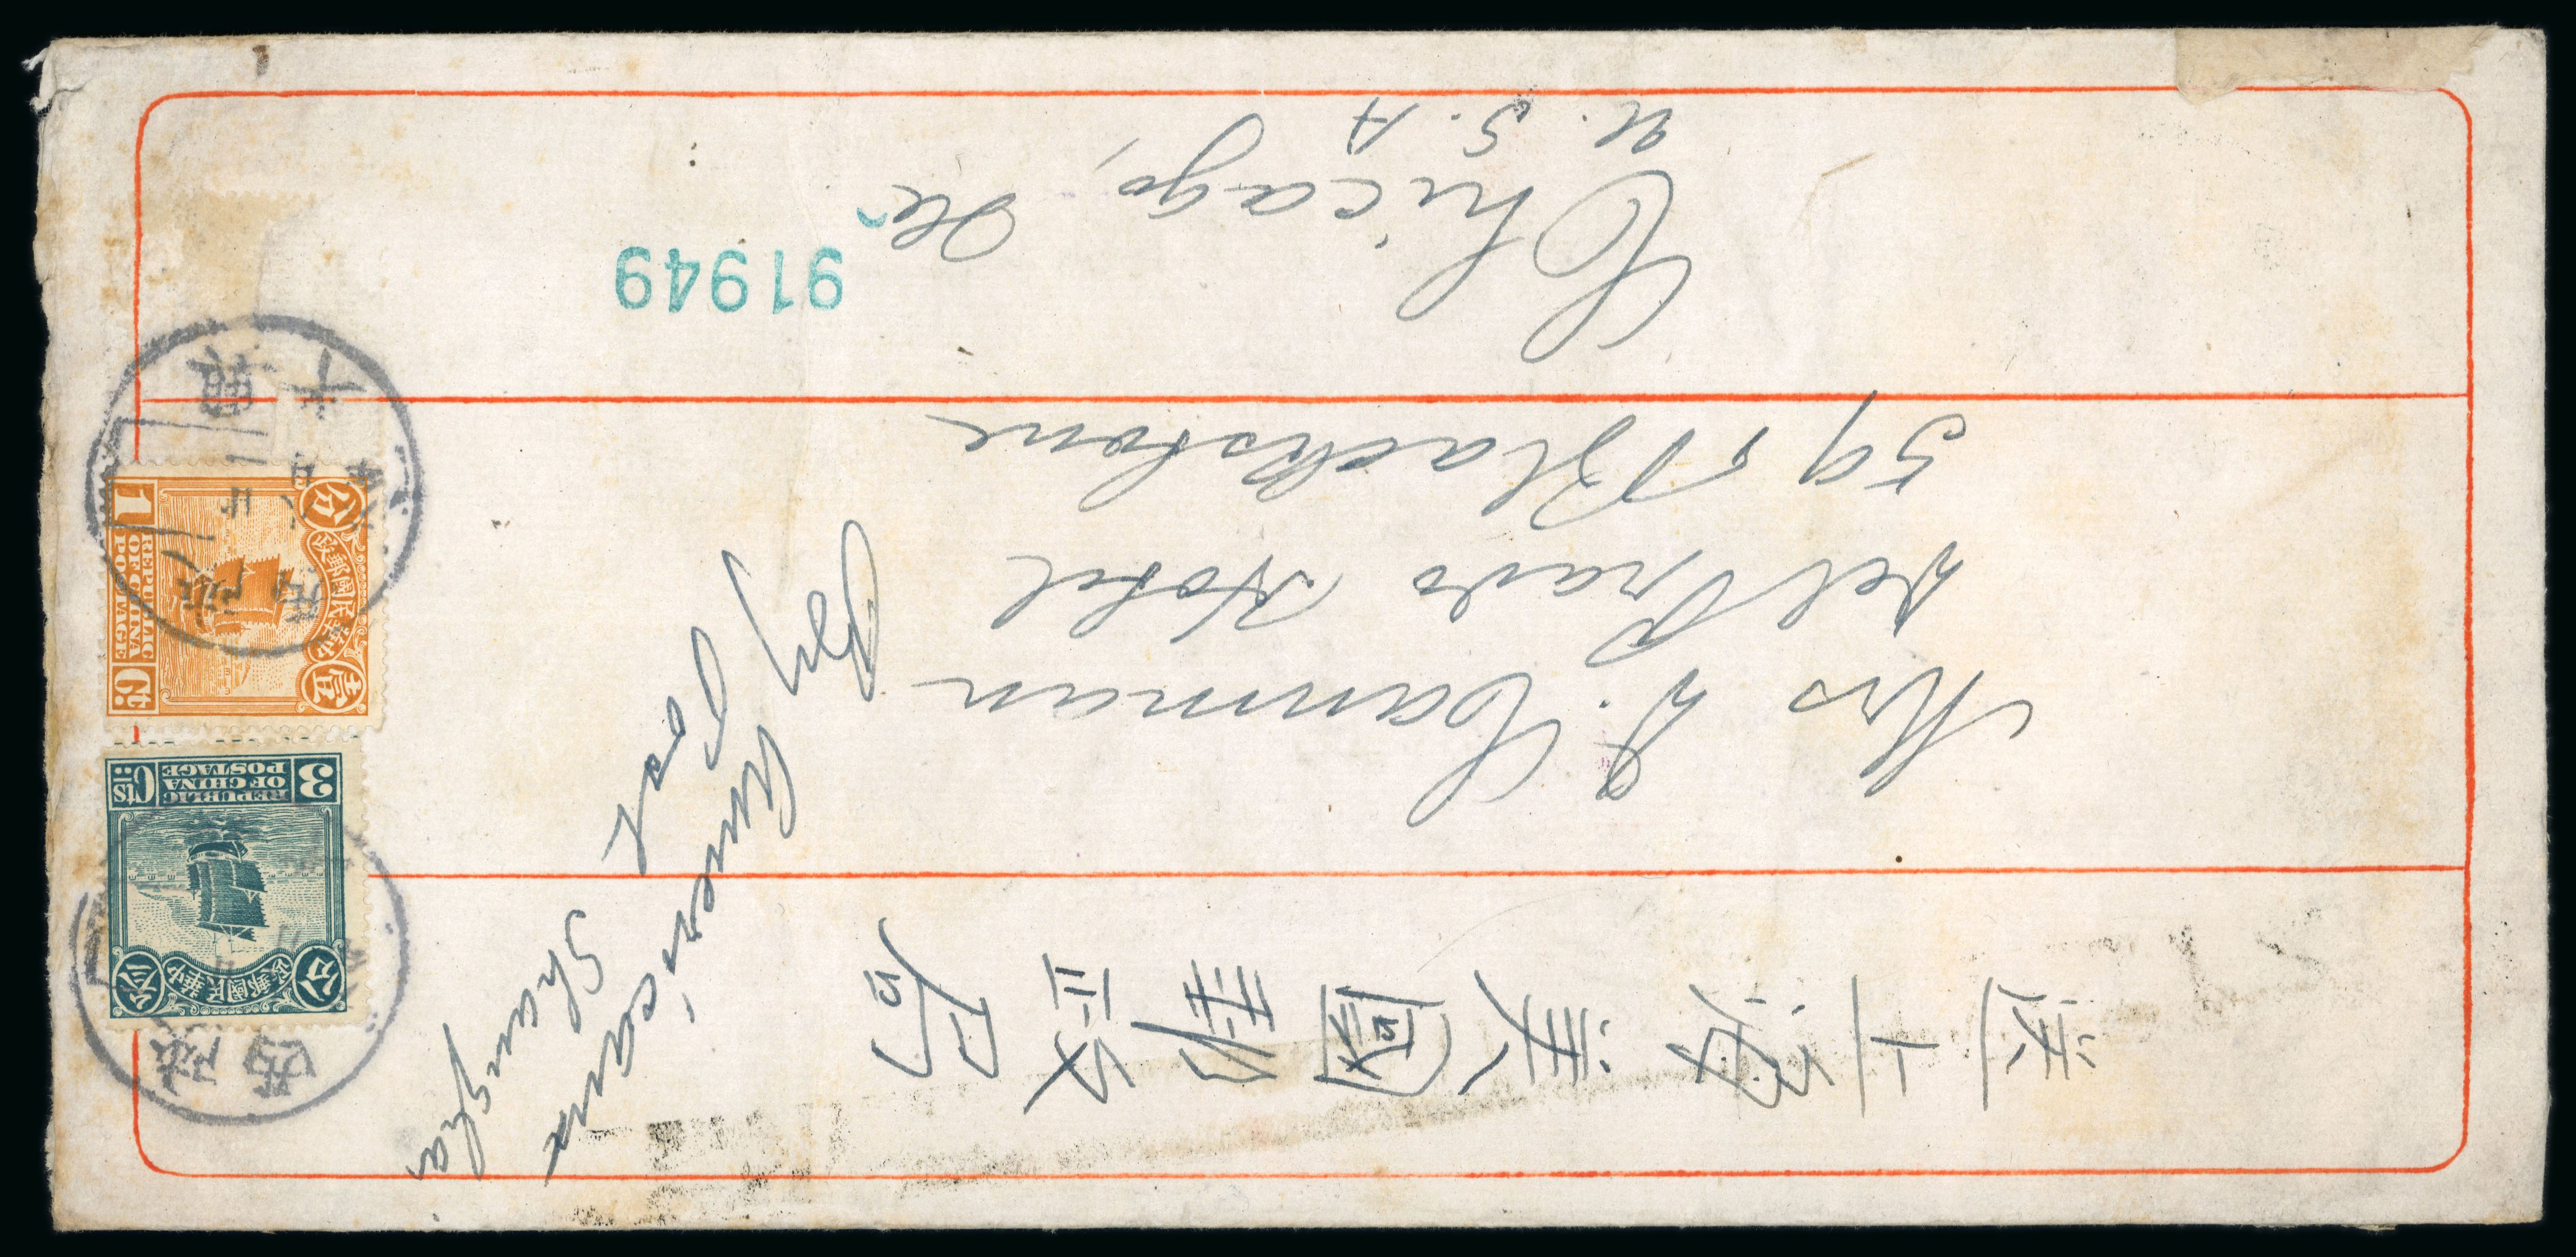 送上海美國郵政局
Mrs Camman
Del Prado Hotel
59 & Blackstone
Chicago, Ill
U. S. A
By American
Post
Shanghai
91949
中華民國郵政
壹 分
REPUBLIC
OF CHINA
POSTAGE
1 Ct.
中華民國郵政
叁 分
3 REPUBLIC OF CHINA POSTAGE Cts